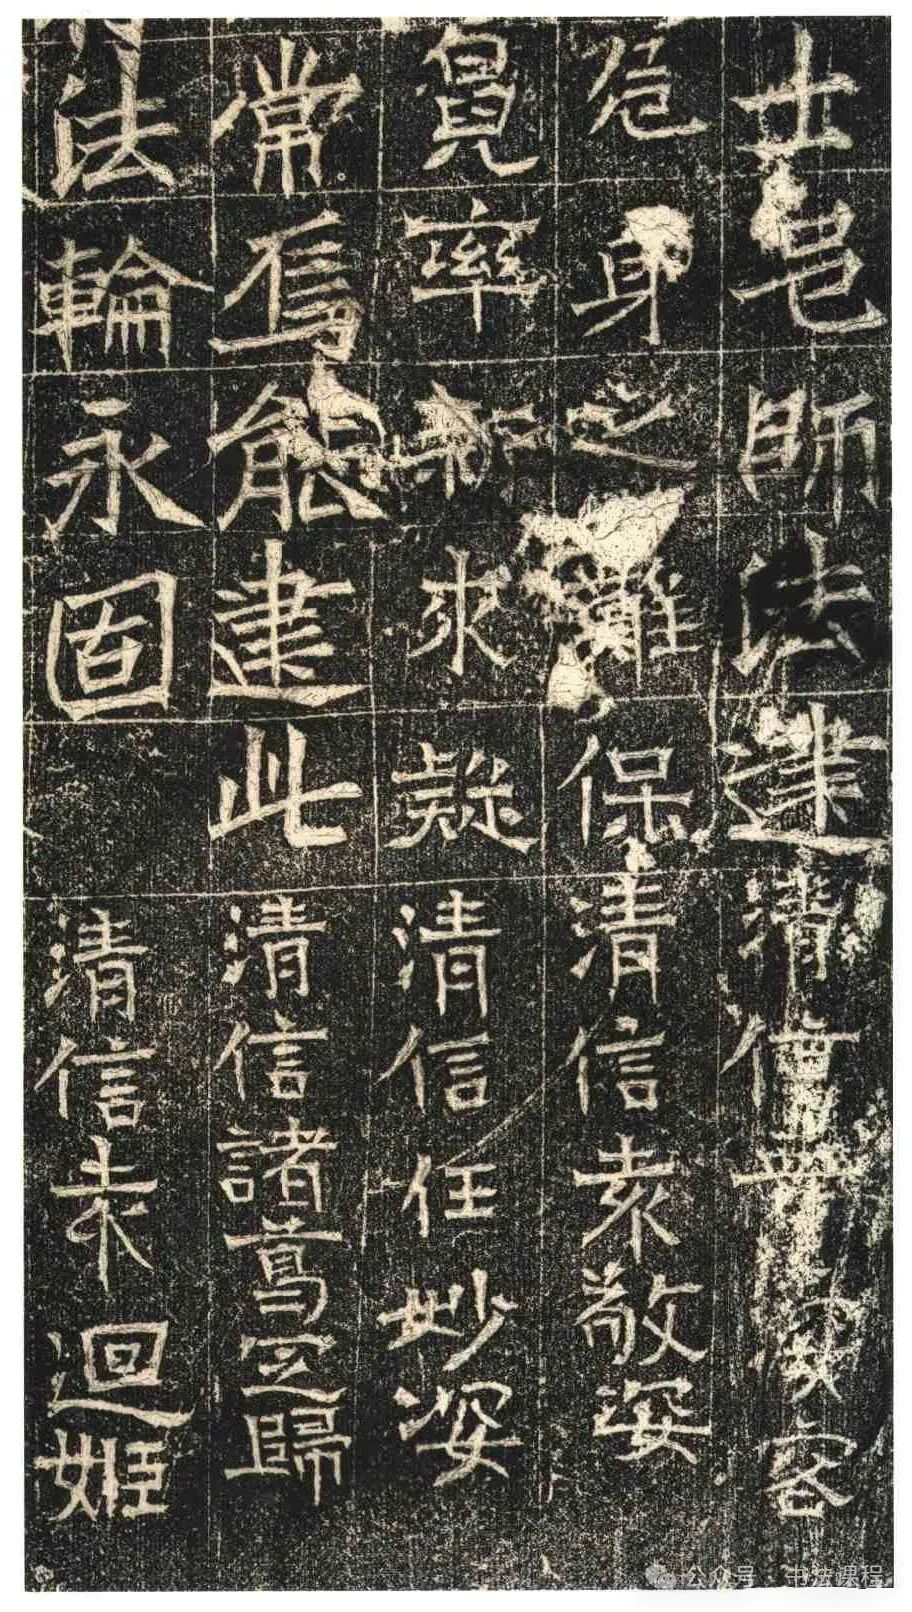 士邑師法達清信 容
危身之難保清信袁敬姿
覓率 求疑清信任妙姿
常焉能建此清信諸葛定歸
法輪永固清信袁迴姬
公众号·书法课程